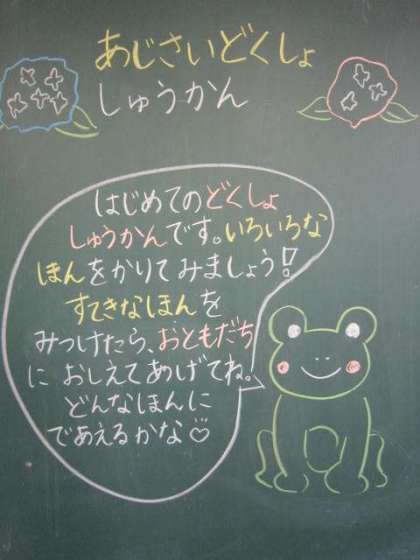 あじさいどくしょ
しゅうかん
はじめてのどくしょ
しゅうかんです。いろいろな
ほんをかりてみましょう！
すてきなほんを
みつけたら、おともだち
に おしえてあげてね。
どんなほんに
であえるかな♡